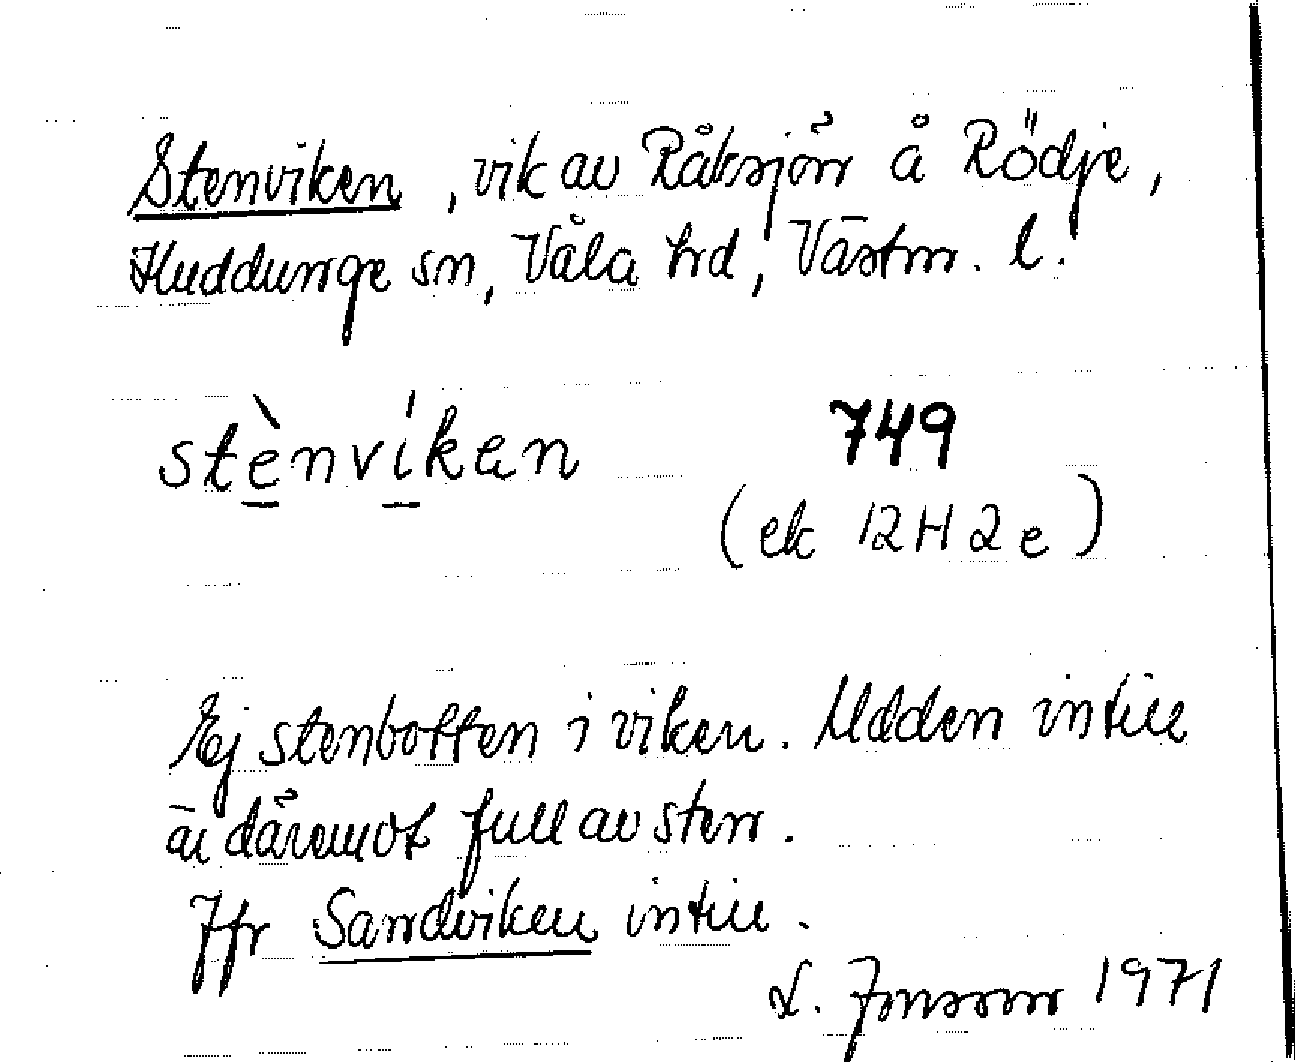 Stenviken, vik av Råksjön å Rödje,
Huddunge sn, Våla hd, Västm. l.
stènvíken
749
(ek 12H2e)
Ej stenbotten i viken. Udden intill
är däremot full av sten.
Jfr Sandviken intill.
L. Jonsson 1971